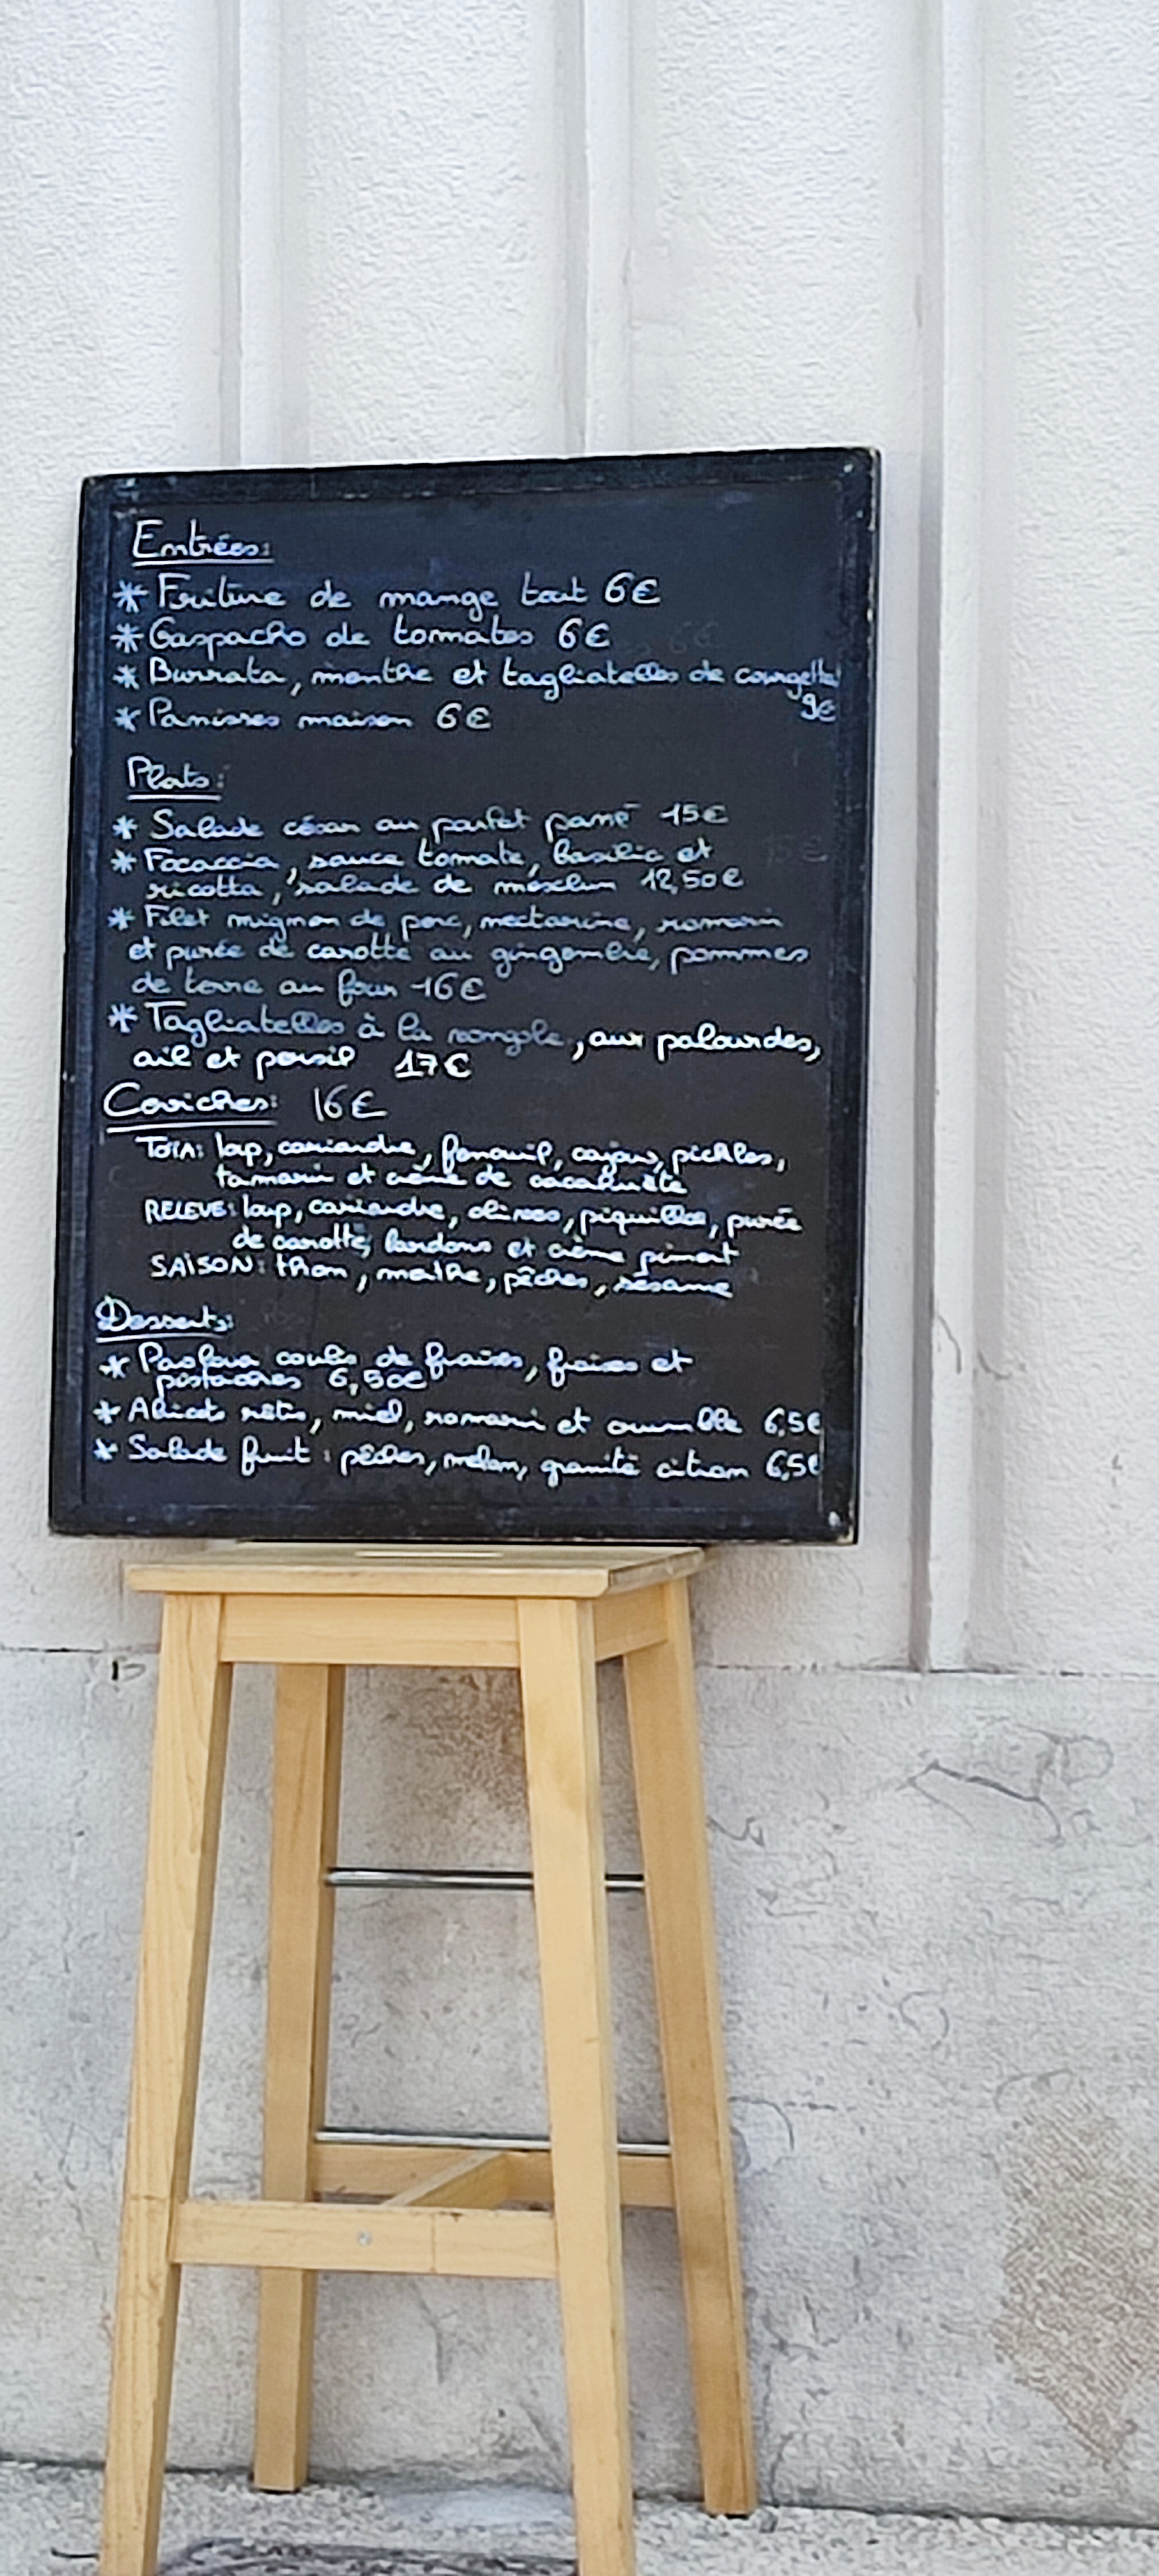 Entrées:
* Friture de mange tout 6€
* Gaspacho de tomates 6€
* Burrata, menthe et tagliatelles de courgette
9€
* Panisses maison 6€
Plats:
* Salade césar au poulet pané 15€
* Focaccia, sauce tomate, basilic et
ricotta, salade de mesclun 12,50€
* Filet mignon de porc, nectarine, romarin
et purée de carotte au gingembre, pommes
de terre au four 16€
* Tagliatelles à la vongole, aux palourdes,
ail et persil 17€
Ceviches: 16€
loup, coriandre, fenouil, cajou, pickles,
tamarin et crème de cacahuète
RELEVE: loup, coriandre, olives, piquillos, purée
de carotte, lardons et crème piment
SAISON: thon, menthe, pêches, sésame
Desserts:
* Pavlova coulis de fraises, fraises et
pistaches 6,50€
* Abricots rôtis, miel, romarin et crumble 6,5€
* Salade fruit : pêches, melon, granité citron 6,5€